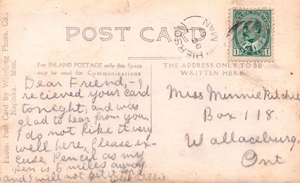 POST CARD
FOR INLAND POSTAGE only this
be used for Communications
THE ADDRESS ONLY TO BE
WRITTEN HERE
Dear Friend-I
recieved your card
tonight, and was
glad to hear from you.
I do not like it very
well here, Please, ex-
cuse Pencil as my
pen is 5 miles away
and I will not get it
Miss Minnie Ritchie
Box 118.
Wallaceburg
Ont